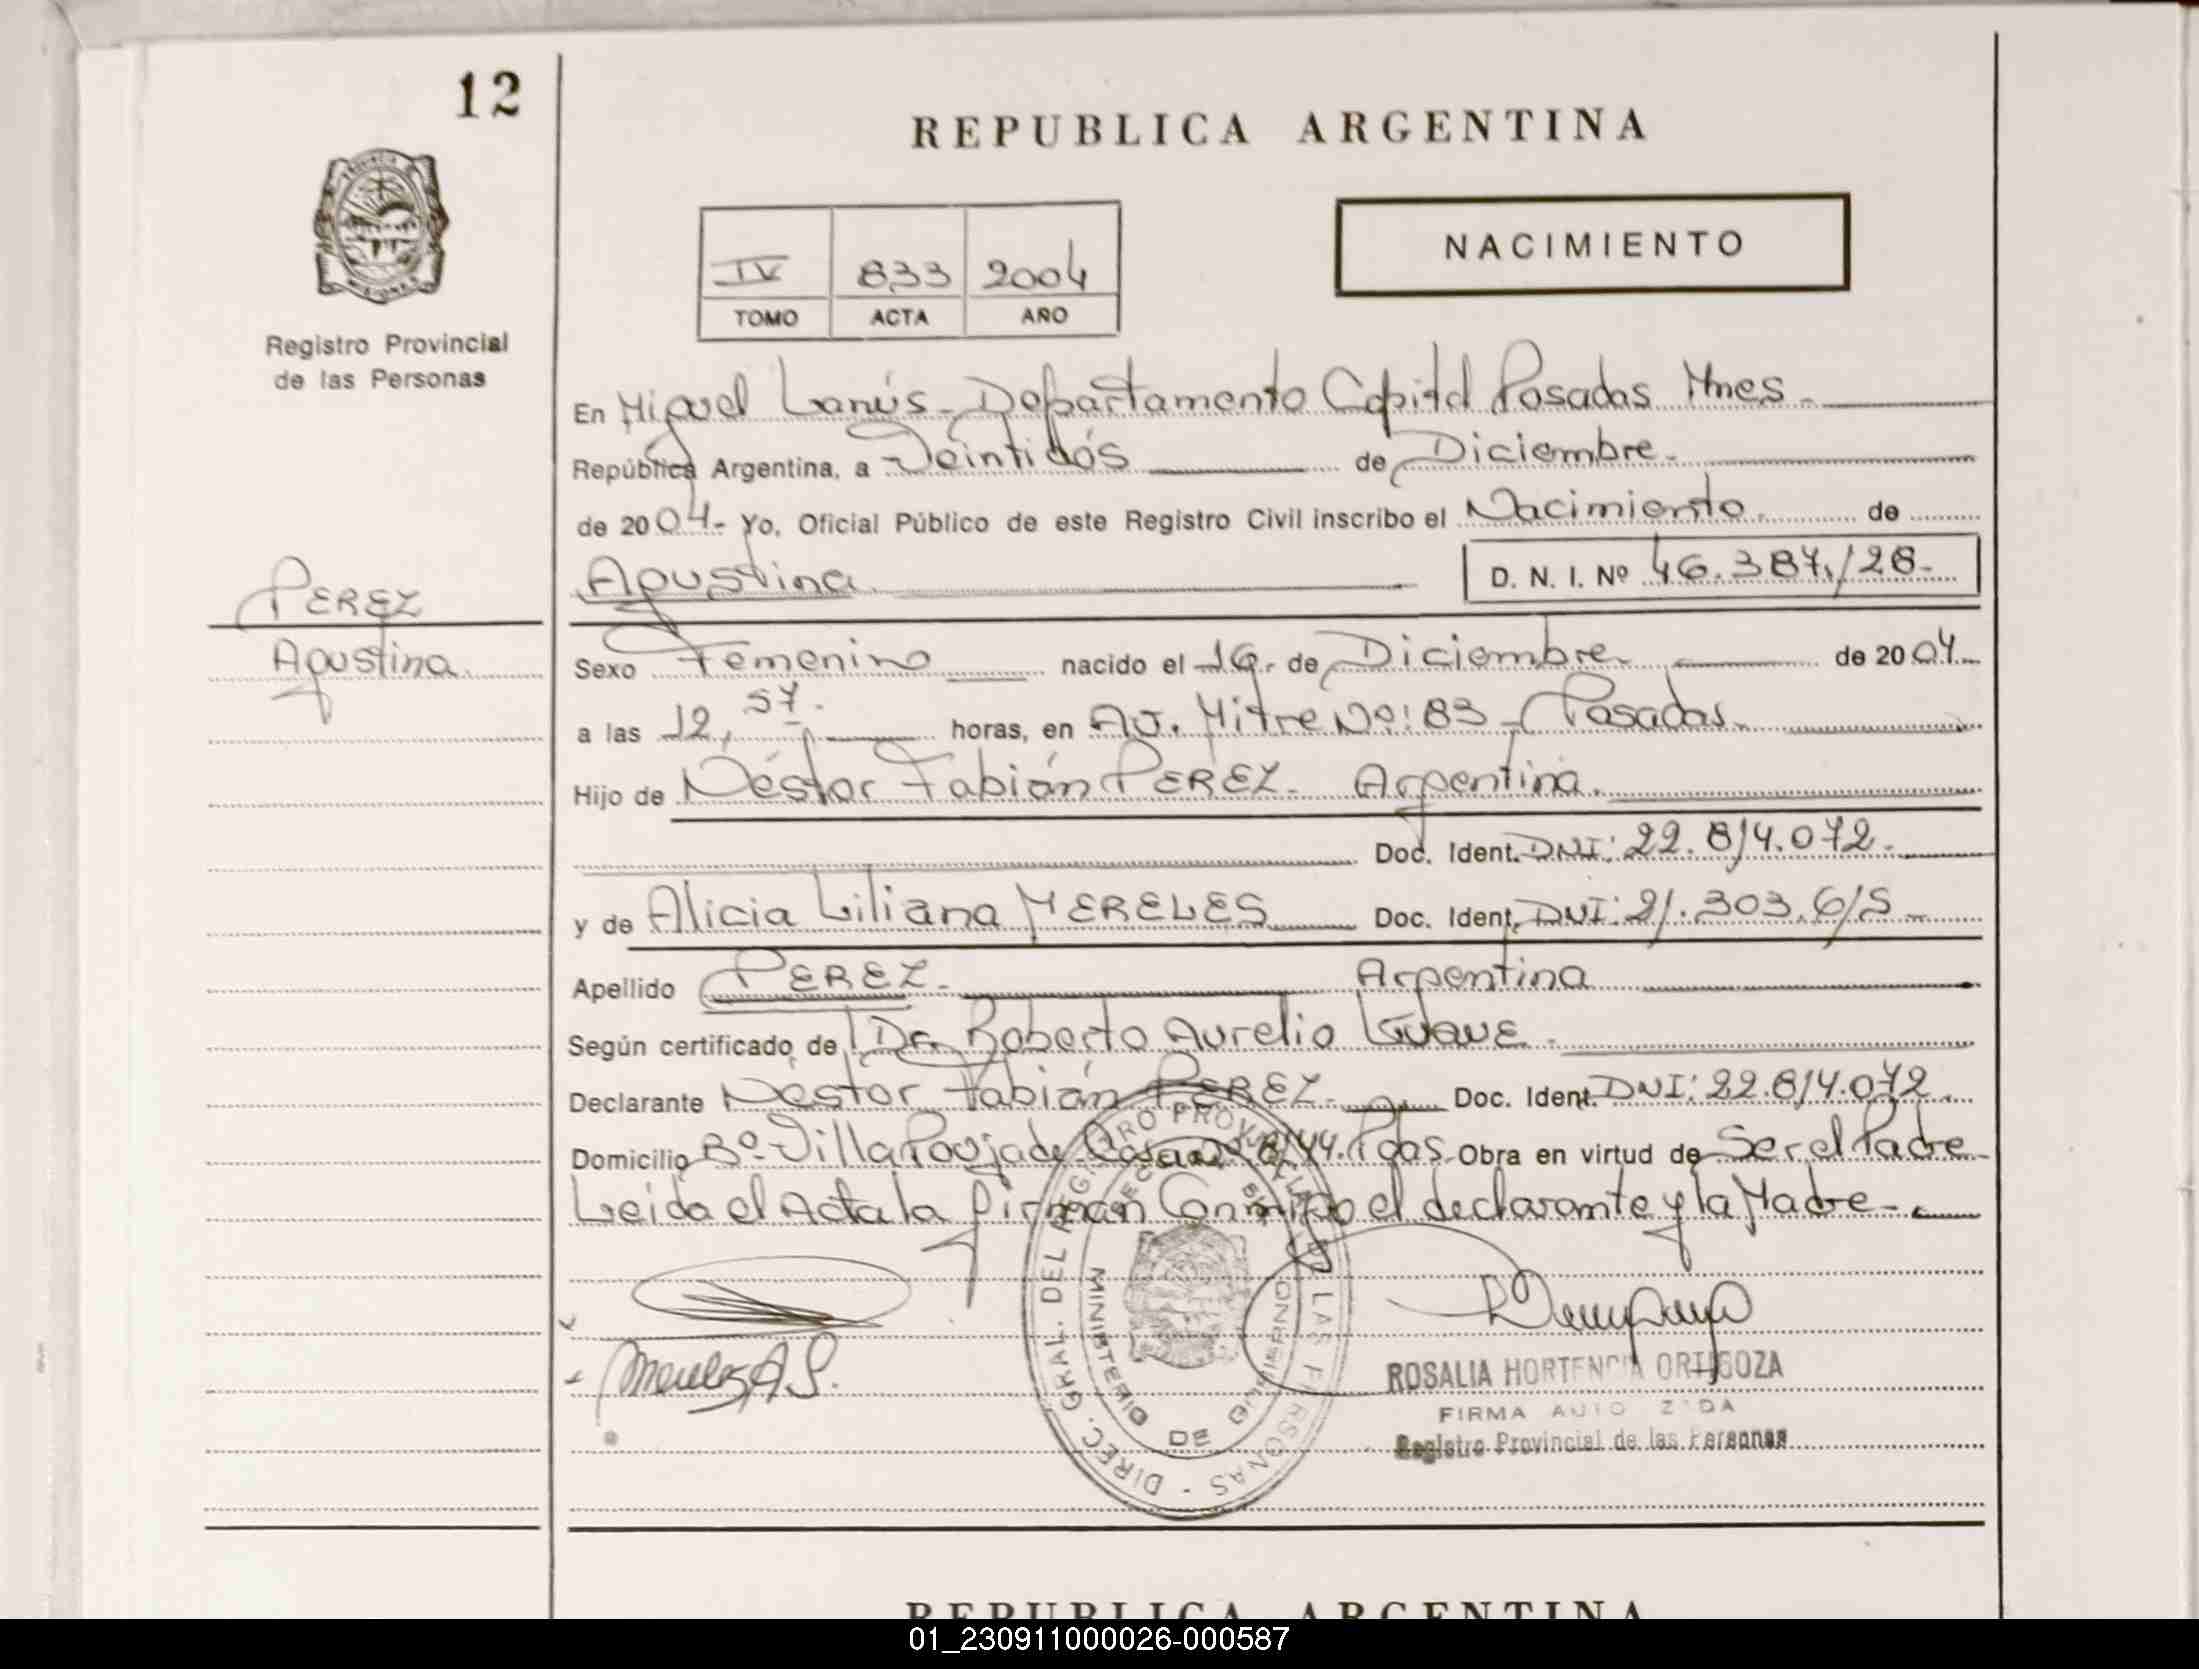 12
REPUBLICA ARGENTINA
NACIMIENTO
IV 833 2004
TOMO ACTA AÑO
Registro Provincial
de las Personas
En Miguel Lanús - Departamento Capital Posadas Mnes.
República Argentina, a Veintidós de Diciembre.
de 2004.- Yo, Oficial Público de este Registro Civil inscribo el Nacimiento de
Agustina D. N. I. Nº 46.387.128.-
PEREZ
Agustina.
Sexo Femenino nacido el 16. de Diciembre de 2004.
a las 12,57. horas, en Av. Mitre Nº: 83 - Posadas.
Hijo de Néstor Fabián PEREZ. Argentina.
Doc. Ident. DNI: 22.814.072.
y de Alicia Liliana MERELES Doc. Ident. DNI: 21.303.615
Apellido PEREZ. Argentina
Según certificado de Dr. Roberto Aurelio
Declarante Néstor Fabián PEREZ. Doc. Ident. DNI: 22.814.072.
Domicilio Bº Villa Poujade Casa Pdas. Obra en virtud de Ser el Padre
Leida el Acta la firman Conmigo el declarante y la Madre.-
DIREC. GRAL. DEL REGISTRO PROVINCIAL DE LAS PERSONAS -
MINISTERIO DE GOBIERNO
Mereles A S.
ROSALIA HORTENCIA ORTIGOZA
FIRMA AUTORIZADA
Registro Provincial de las Personas
REPUBLICA ARGENTINA
01_230911000026-000587